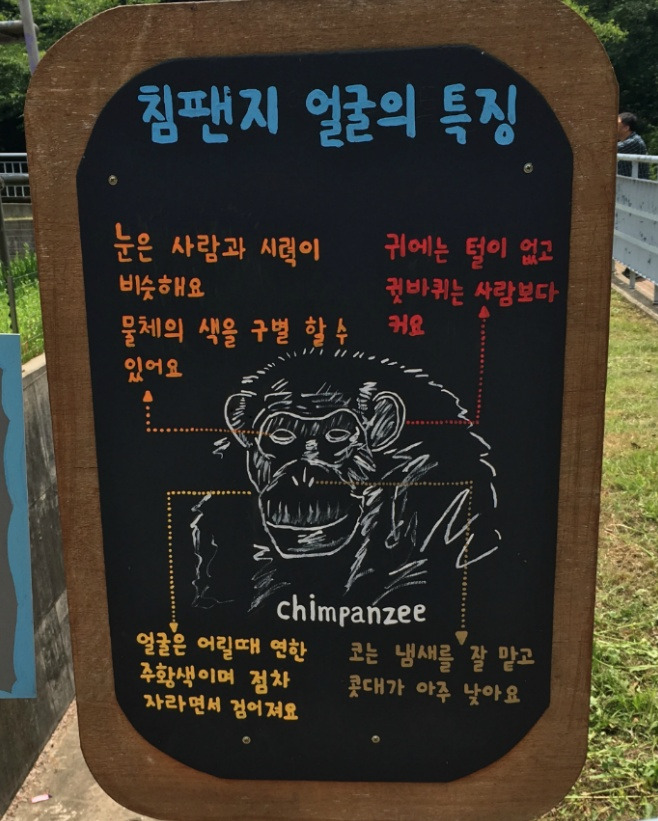 침팬지 얼굴의 특징
눈은 사람과 시력이
비슷해요
물체의 색을 구별 할 수
있어요
귀에는 털이 없고
귓바퀴는 사람보다
커요
chimpanzee
얼굴은 어릴때 연한
주황색이며 점차
자라면서 검어져요
코는 냄새를 잘 맡고
콧대가 아주 낮아요